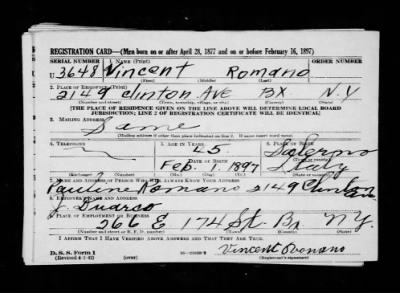 REGISTRATION CARD—(Men born on or after April 28, 1877 and on or before February 16, 1897)
SERIAL NUMBER 1. NAME (Print) ORDER NUMBER
U 3648 Vincent Romano
(First) (Middle) (Last)
2. PLACE OF RESIDENCE (Print)
2149 Clinton AVE BX N.Y
(Number and street) (Town, township, village, or city) (County) (State)
[THE PLACE OF RESIDENCE GIVEN ON THE LINE ABOVE WILL DETERMINE LOCAL BOARD
JURISDICTION; LINE 2 OF REGISTRATION CERTIFICATE WILL BE IDENTICAL]
3. MAILING ADDRESS
Same
[Mailing address if other than place indicated on line 2. If same insert word same]
4. TELEPHONE 5. AGE IN YEARS 6. PLACE OF BIRTH
45 Salerno
DATE OF BIRTH
Feb. 1 1897 Italy
(Exchange) (Number) (Mo.) (Day) (Yr.) (State or country)
7. NAME AND ADDRESS OF PERSON WHO WILL ALWAYS KNOW YOUR ADDRESS
Pauline Romano 2149 Clinton
8. EMPLOYER'S NAME AND ADDRESS
9. PLACE OF EMPLOYMENT OR BUSINESS
266 E 174 St. Bx N.Y.
(Number and street or R. F. D. number) (Town) (County) (State)
I AFFIRM THAT I HAVE VERIFIED ABOVE ANSWERS AND THAT THEY ARE TRUE.
D. S. S. Form 1 Vincent Romano
(Revised 4-1-42) (Registrant's signature)